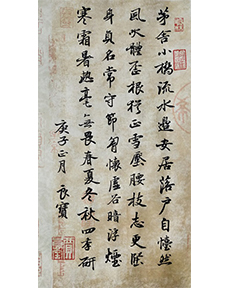 茅舍小橋流水邊安居落戶自怡然
風吹體歪根猶正雪壓腰枝志更堅
身負名常守節胸懷虛谷暗浮煙
寒霜暑熱毫無畏春夏冬秋四季研
庚子正月 良寶